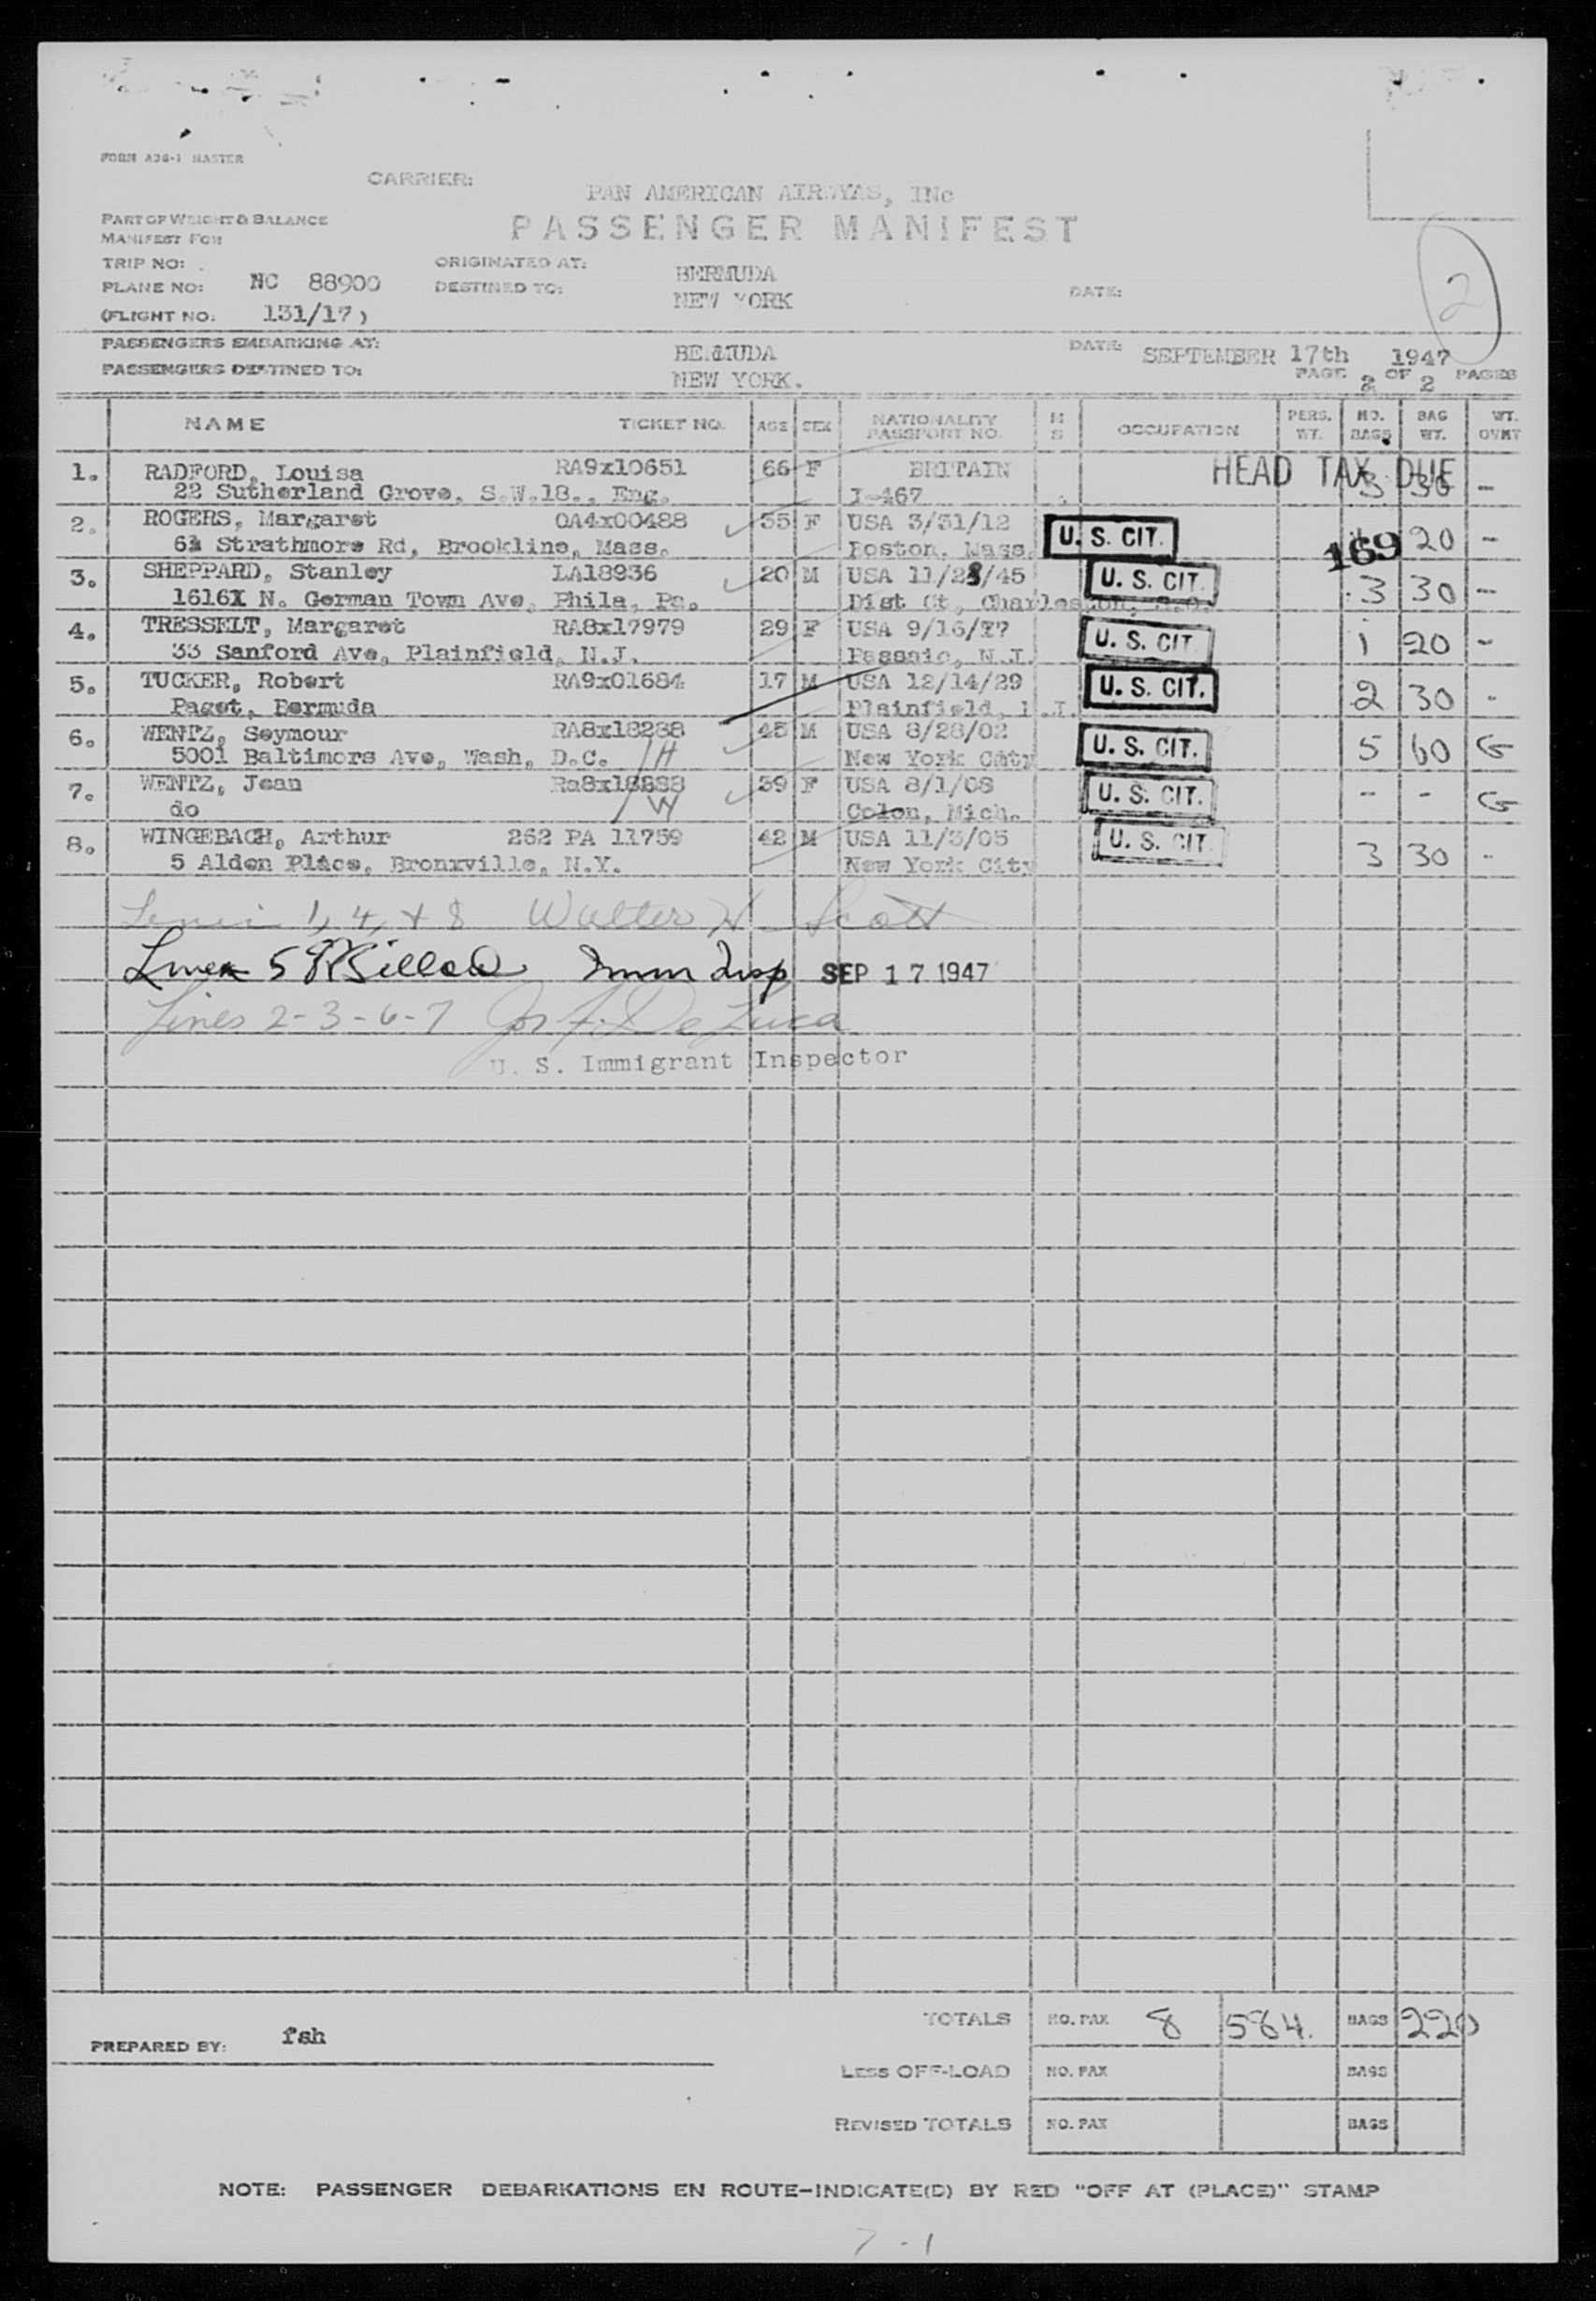 FORM A36-1 MASTER
CARRIER: PAN AMERICAN AIRWYAS, INc
PART OF WEIGHT & BALANCE
MANIFEST FOR
PASSENGER MANIFEST
TRIP NO: ORIGINATED AT: BERMUDA
PLANE NO: NC 88900 DESTINED TO: NEW YORK DATE:
(FLIGHT NO. 131/17)
2
PASSENGERS EMBARKING AT: BERMUDA DATE: SEPTEMBER 17th 1947
PASSENGERS DESTINED TO: NEW YORK. PAGE 2 OF 2 PAGES
NAME TICKET NO. AGE SEX NATIONALITY PASSPORT NO. M S OCCUPATION PERS. WT. NO. BAGS BAG WT. WT. OVWT
1. RADFORD, Louisa RA9x10651 66 F BRITAIN HEAD TAX DUE
22 Sutherland Grove, S.W.18., Eng. I-467 3 30 -
2. ROGERS, Margaret OA4x00488 35 F USA 3/31/12 U. S. CIT. 169 20 -
Strathmore Rd, Brookline, Mass. Boston, Mass.
3. SHEPPARD, Stanley LA18936 20 M USA 11/28/45 U. S. CIT. 3 30 -
1616X N. German Town Ave, Phila, Pa. Dist Ct, Charleston, S.C.
4. TRESSELT, Margaret RA8x17979 29 F USA 9/16/17 U. S. CIT. 1 20 -
33 Sanford Ave, Plainfield, N.J. Passaic, N.J.
5. TUCKER, Robert RA9x01684 17 M USA 12/14/29 U. S. CIT. 2 30 -
Paget, Bermuda Plainfield, N.J.
6. WENTZ, Seymour RA8x18288 /H 45 M USA 8/28/02 U. S. CIT. 5 60 G
5001 Baltimors Ave, Wash, D.C. New York City
7. WENTZ, Jean Ra8x18288 /W 39 F USA 8/1/08 U. S. CIT. - - G
do Colon, Mich.
8. WINGEBACH, Arthur 262 PA 11759 42 M USA 11/3/05 U. S. CIT. 3 30 -
5 Alden Place, Bronxville, N.Y. New York City
Lines 1, 4, + 8 Walter H Scott
Lines 5 Imm Insp SEP 17 1947
Lines 2-3-6-7 Jos F. De Luca
U. S. Immigrant Inspector
TOTALS NO. PAX 8 584. BAGS 220
PREPARED BY: fsh
LESS OFF-LOAD NO. PAX BAGS
REVISED TOTALS NO. PAX BAGS
NOTE: PASSENGER DEBARKATIONS EN ROUTE-INDICATE(D) BY RED "OFF AT (PLACE)" STAMP
7-1